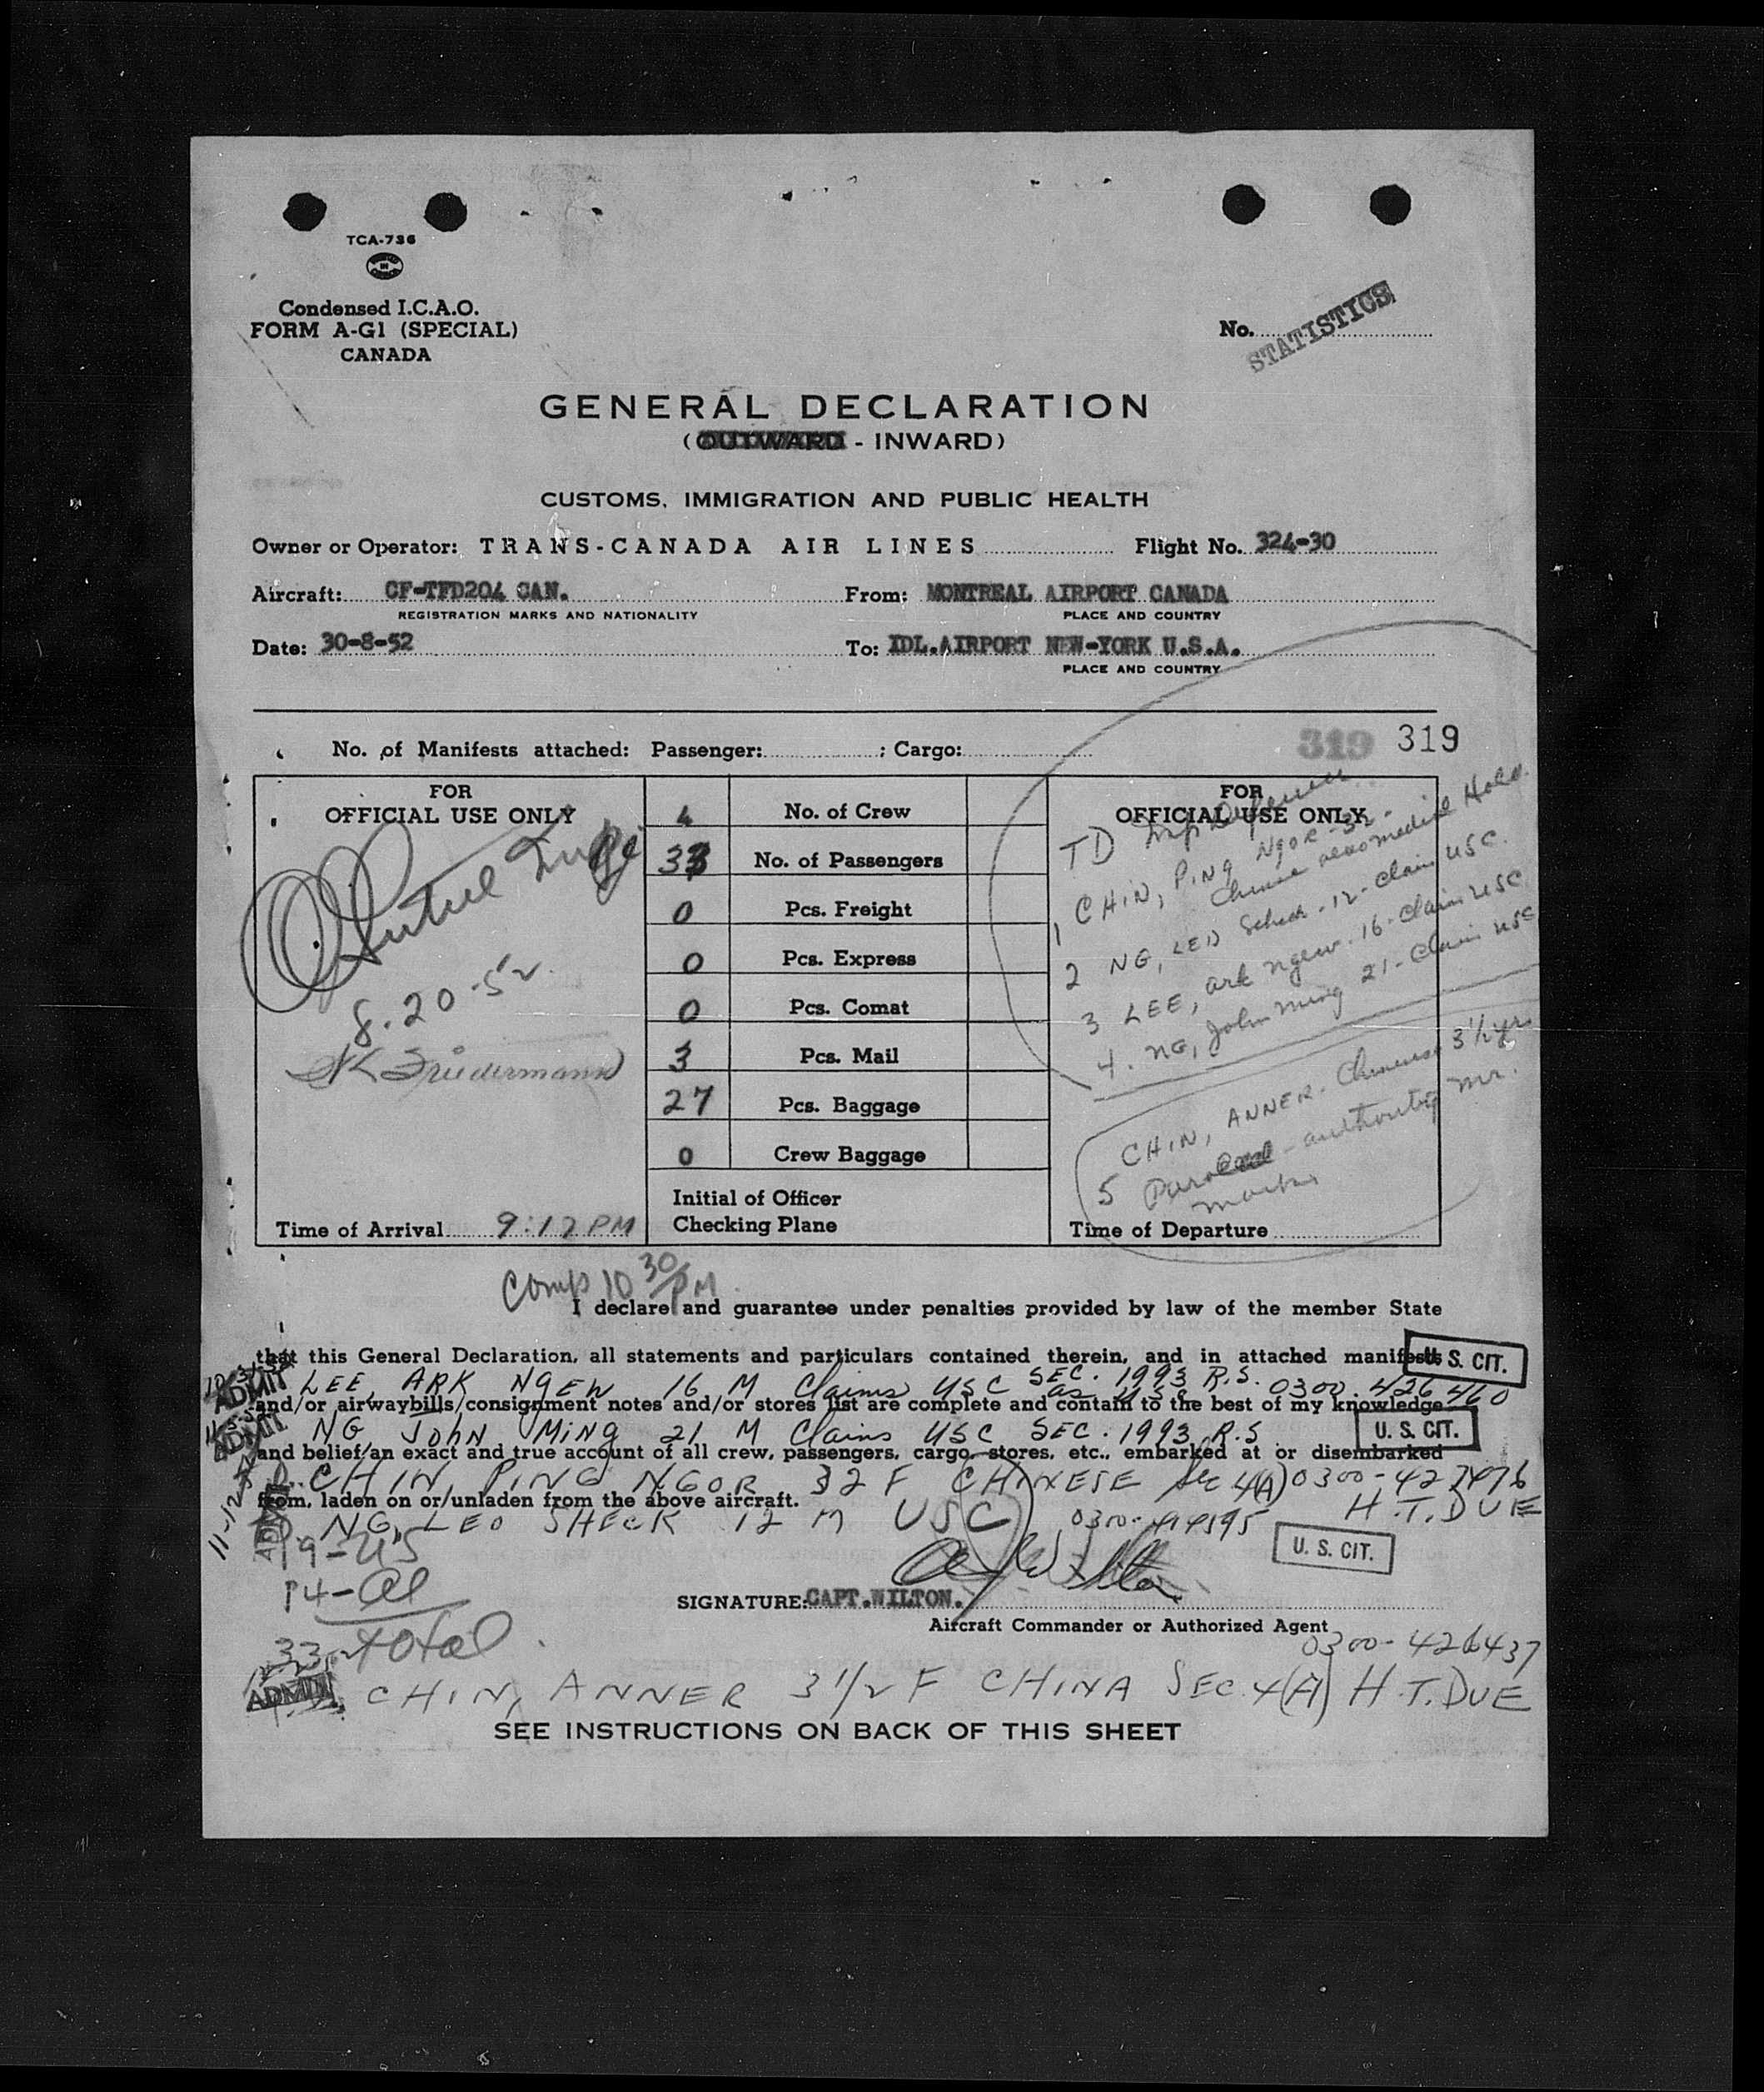 TCA-736
Condensed I.C.A.O.
FORM A-G1 (SPECIAL)
CANADA
No.
STATISTICS
GENERAL DECLARATION
(OUTWARD - INWARD)
CUSTOMS, IMMIGRATION AND PUBLIC HEALTH
Owner or Operator: TRANS-CANADA AIR LINES Flight No. 324-30
Aircraft: CF-TFD204 CAN. From: MONTREAL AIRPORT CANADA
REGISTRATION MARKS AND NATIONALITY PLACE AND COUNTRY
Date: 30-8-52 To: IDL.AIRPORT NEW-YORK U.S.A.
PLACE AND COUNTRY
319 319
No. of Manifests attached: Passenger: ; Cargo:
FOR
OFFICIAL USE ONLY
8.20-52
Friedermann
Time of Arrival 9:17 PM
4 No. of Crew
33 No. of Passengers
0 Pcs. Freight
0 Pcs. Express
0 Pcs. Comat
3 Pcs. Mail
27 Pcs. Baggage
0 Crew Baggage
Initial of Officer
Checking Plane
FOR
OFFICIAL USE ONLY
TD
1 CHIN, PING NgOR-32-
Chinese also medical Hold.
2 NG, LEO Scheck-12-Claim USC.
3 LEE, ark ngew.16-Claim USC
4. NG, John Ming 21-Claim USC
CHIN, ANNER-Chinese 3 1/2 yrs
5 Paroled-authority Mr.
Time of Departure
Comp 10 30/PM
I declare and guarantee under penalties provided by law of the member State
that this General Declaration, all statements and particulars contained therein, and in attached manifests
U. S. CIT.
ADMIT LEE, ARK NGEW 16 M Claims USC SEC. 1993 R.S. 0300-426460
and/or airwaybills/consignment notes and/or stores list are complete and contain to the best of my knowledge
ADMIT NG JOHN MING 21 M Claims USC SEC. 1993 R.S U. S. CIT.
and belief/an exact and true account of all crew, passengers, cargo, stores, etc., embarked at or disembarked
CHIN, PING NGOR 32 F CHINESE Sec 4(A) 0300-427476
from, laden on or/unladen from the above aircraft.
H.T. DUE
ADMIT NG, LEO SHECK 12 M USC
U. S. CIT.
19-US
14-Al
33-total
SIGNATURE: CAPT.WILTON.
Aircraft Commander or Authorized Agent
0300-426437
ADMIT CHIN, ANNER 3 1/2 F CHINA SEC. 4(A) H.T. DUE
SEE INSTRUCTIONS ON BACK OF THIS SHEET